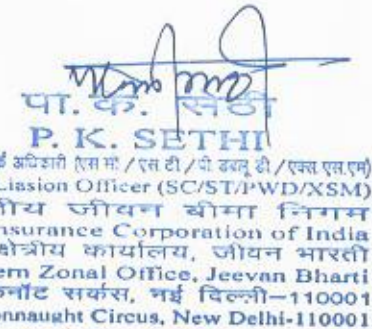 पा. के. सेठी
P. K. SETHI
ई अधिकारी (एस सी / एस टी / पी डबलू डी / एक्स एस एम)
Liasion Officer (SC/ST/PWD/XSM)
ीय जीवन बीमा निगम
nsurance Corporation of India
क्षेत्रीय कार्यालय, जीवन भारती
ern Zonal Office, Jeevan Bharti
कनॉट सर्कस, नई दिल्ली-110001
onnaught Circus, New Delhi-110001